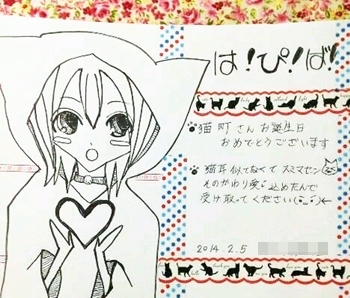 は!ぴ!ば!
猫町さんお誕生日
おめでとうございます
猫耳似てなくてスミマセン
そのかわり愛込めたんで
受け取ってください
2014.2.5